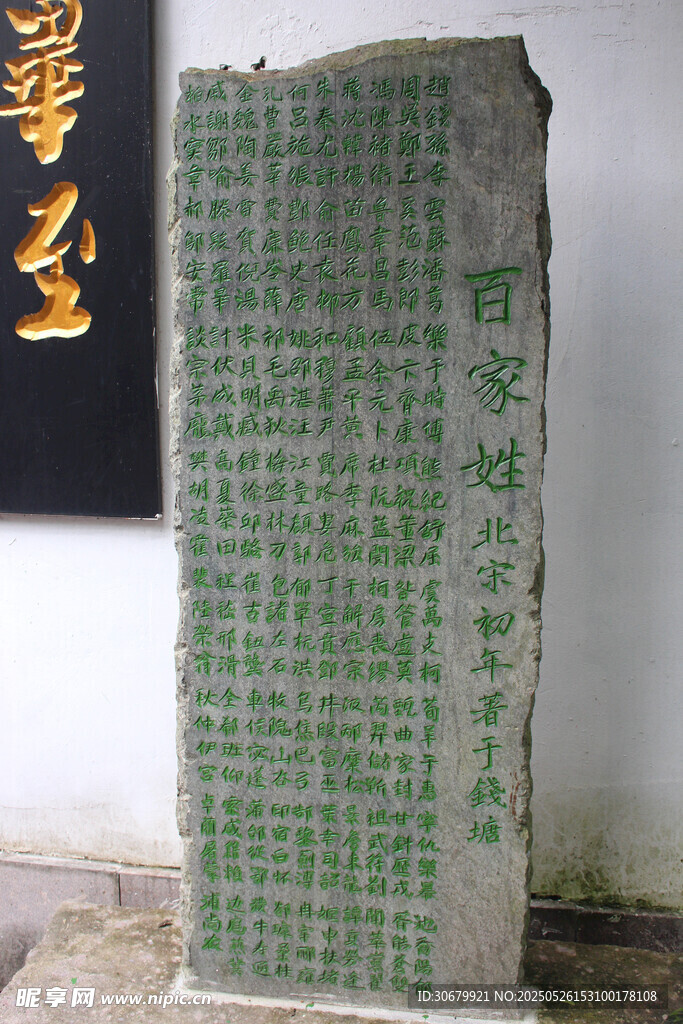 百家姓 北宋初年著于錢塘
趙錢孫李 雲蘇潘葛 樂于時傅 熊紀舒屈 虞萬支柯 荀羊于惠 寧仇欒暴 池喬陽
周吳鄭王 奚范彭郎 皮卞齊康 項祝董梁 昝管盧莫 甄曲家封 甘鈄厲戎 胥能蒼雙
馮陳褚衛 魯韋昌馬 伍余元卜 杜阮藍閔 柯房裘繆 芮羿儲靳 祖武符劉 聞莘黨翟
蔣沈韓楊 苗鳳花方 顧孟平黃 席季麻強 干解應宗 汲邴糜松 景詹束龍 譚貢勞逄
朱秦尤許 俞任袁柳 和穆蕭尹 賈路婁危 丁宣賁鄧 井段富巫 葉幸司韶 姬申扶堵
何呂施張 酆鮑史唐 姚邵湛汪 江童顏郭 郁單杭洪 烏焦巴弓 郜黎薊薄 冉宰酈雍
孔曹嚴華 費廉岑薛 祁毛禹狄 梅盛林刁 包諸左石 牧隗山谷 印宿白懷 郤璩桑桂
金魏陶姜 雷賀倪湯 米貝明臧 鍾徐邱駱 崔吉鈕龔 車侯宓蓬 蒲邰從鄂 濮牛壽通
戚謝鄒喻 滕殷羅畢 計伏成戴 高夏蔡田 程嵇邢滑 全郗班仰 索咸籍賴 邊扈燕冀
柏水竇章 郝鄔安常 談宋茅龐 樊胡凌霍 裴陸榮翁 秋仲伊宮 卓藺屠蒙 浦尚農
畢至
昵享网 www.nipic.cn
ID:30679921 NO:20250526153100178108